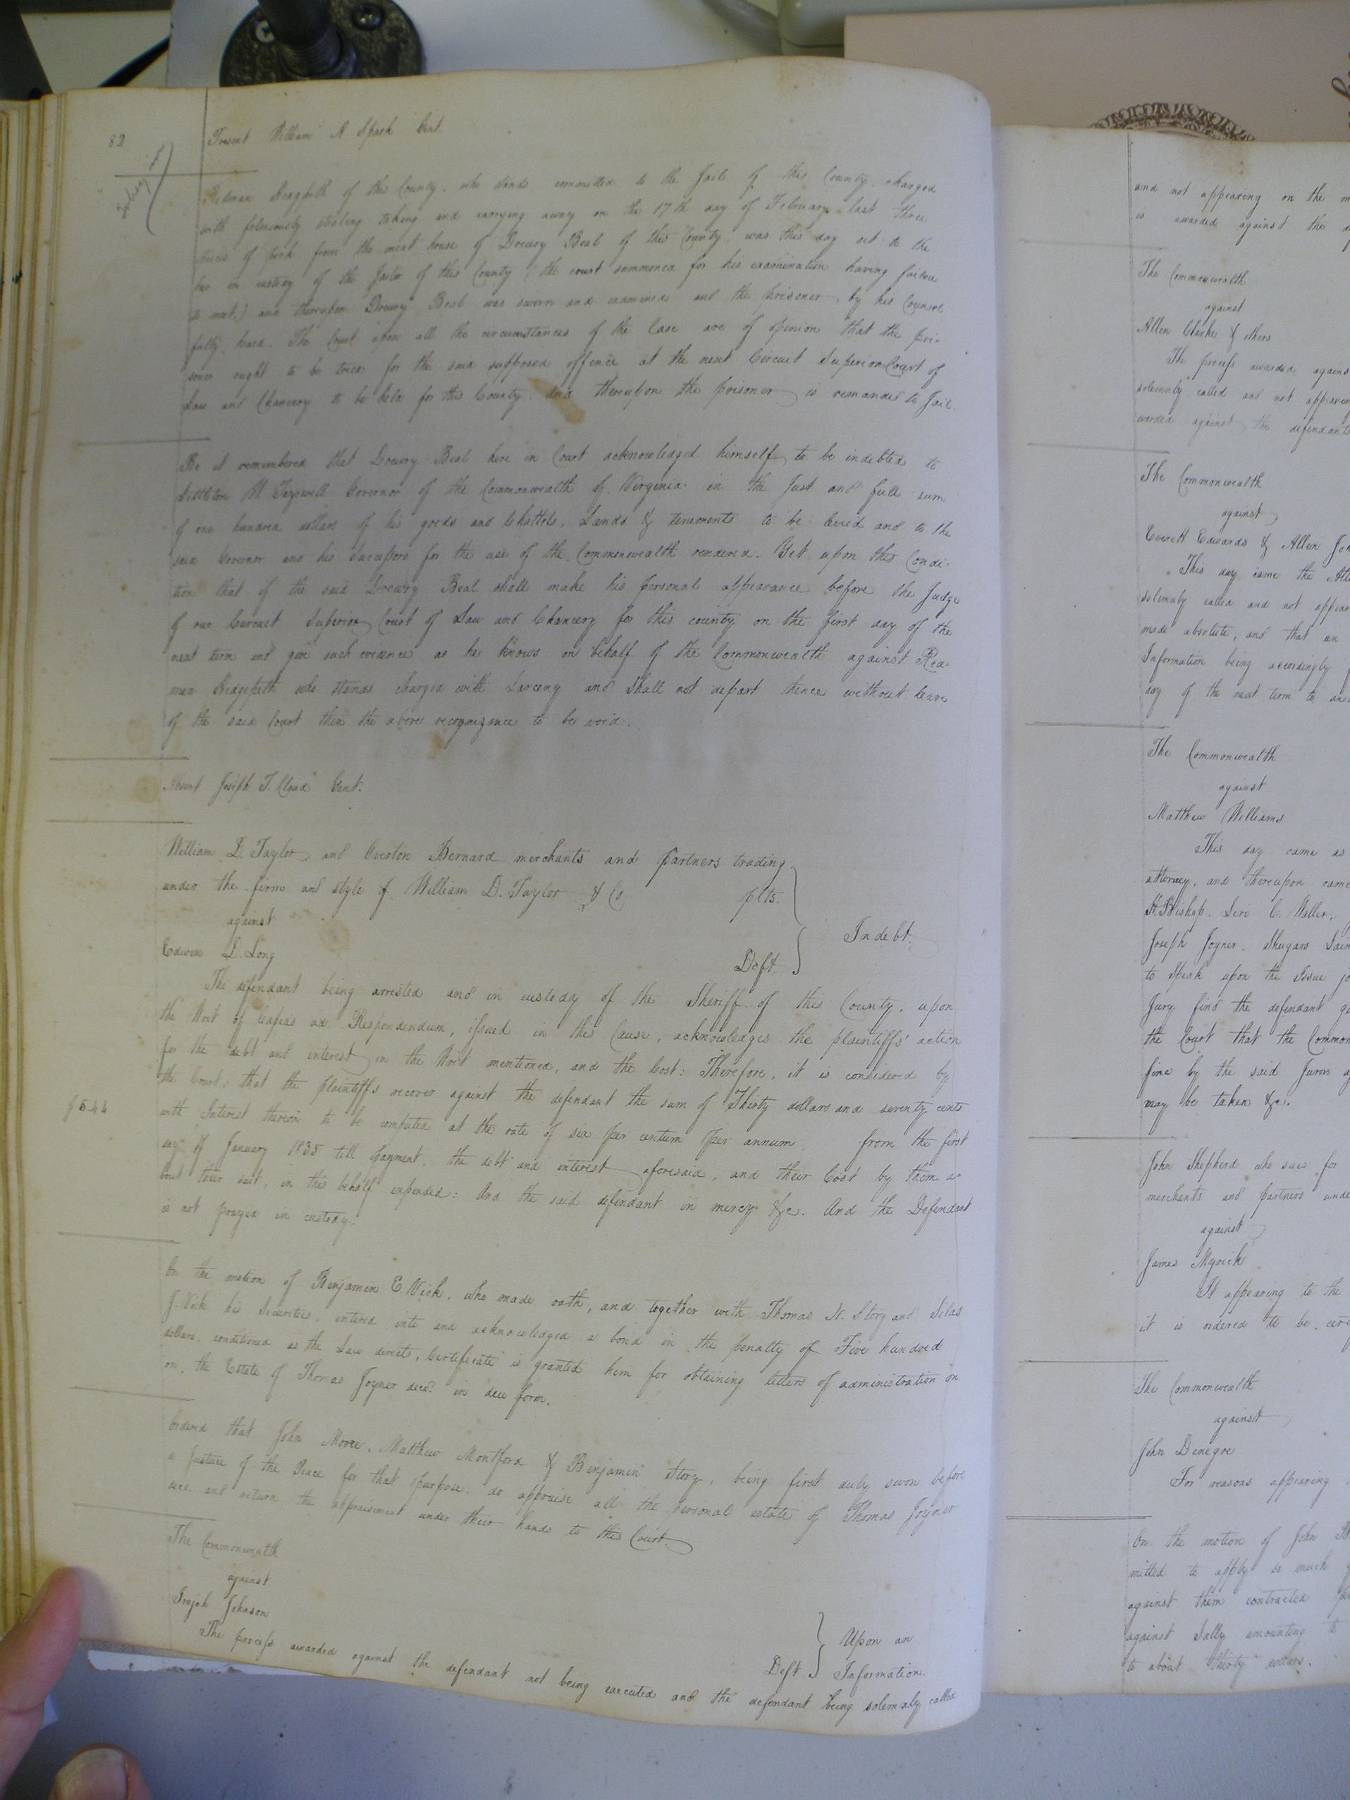 82
Present William A Spark Gent.
Redman of this County who stands committed to the Jail of this County charged
with feloniously stealing taking and carrying away on the 17th day of February last three
pieces of pork from the meat house of Drewry Beal of this County was this day set to the
bar in custody of the Jailor of this County (the court summoned for his examination having failed
to meet) and thereupon Drewry Beal was sworn and examined and the prisoner, by his Counsel
fully heard. The Court upon all the circumstances of the Case are of opinion that the pri-
soner ought to be tried for the said supposed offence at the next Circuit Superior Court of
Law and Chancery to be held for this County. And thereupon the prisoner is remanded to Jail.
Be it remembered that Drewry Beal here in Court acknowledged himself to be indebted to
Littleton W Tazewell Governor of the Commonwealth of Virginia in the just and full sum
of one hundred dollars of his goods and Chattels, Lands & tenements to be levied and to the
said Governor and his Successors for the use of the Commonwealth rendered. Yet upon this Condi-
tion that if the said Drewry Beal shall make his personal appearance before the Judge
of our Circuit Superior Court of Law and Chancery for this county on the first day of the
next term and give such evidence as he knows on behalf of the Commonwealth against Red-
man who stands charged with Larceny and shall not depart thence without leave
of the said Court then the above recognizance to be void.
Absent Joseph T. Claud Gent.
William D. Taylor and Overton Bernard merchants and partners trading
under the firm and style of William D. Taylor & Co. plts.
against
Indebt.
Edwin D. Long Deft.
The defendant being arrested and in custody of the Sheriff of this County, upon
the Writ of Capias ad Respondendum, issued in this Cause, acknowledges the plaintiffs' action
for the debt and interest in the Writ mentioned, and the Cost: Therefore, it is considered by
the Court, that the plaintiffs recover against the defendant the sum of Thirty dollars and seventy cents
$5.44
with Interest thereon to be computed at the rate of six per centum per annum from the first
day of January 1835 till payment, the debt and interest aforesaid, and their Cost by them a-
bout their suit, in this behalf expended: And the said defendant in mercy &c. And the Defendant
is not prayed in custody.
On the motion of Benjamin E. Vick, who made oath, and together with Thomas N. Story and Silas
J. Vick his Securities, entered into and acknowledged a bond in the penalty of Five hundred
dollars, conditioned as the Law directs, Certificate is granted him for obtaining letters of administration on
on the Estate of Thomas Joyner decd. in due form.
Ordered that John Moore, Matthew Montford & Benjamin Story, being first duly sworn before
a Justice of the Peace for that purpose, do appraise all the personal estate of Thomas Joyner
decd. and return the appraisement under their hands to this Court.
The Commonwealth
against
Trajah Johnson Deft
Upon an
Information
The process awarded against the defendant not being executed and the defendant being solemnly called
and not appearing on the
is awarded against the
The Commonwealth
against
Allen Clarke & others
The process awarded agains
solemnly called and not appearin
warded against the defendants
The Commonwealth
against
Everett Edwards & Allen
This day came the
solemnly called and not appear
made absolute, and that an
Information being accordingly
day of the next term to
The Commonwealth
against
Matthew Williams
This day came as
attorney, and thereupon came
Bishop. Levi C. Waller,
Joseph Joyner,
to speak upon the Issue
Jury find the defendant
the Court that the Common
fine by the said Jurors
may be taken &c.
John Shepherd who sues for
merchants and partners unde
against
James Myrick
It appearing to the
it is ordered to be
The Commonwealth
against
John Denegre
For reasons appearing
On the motion of John
mitted to apply so much
against them contracted
against Sally amounting to
to about thirty dollars.